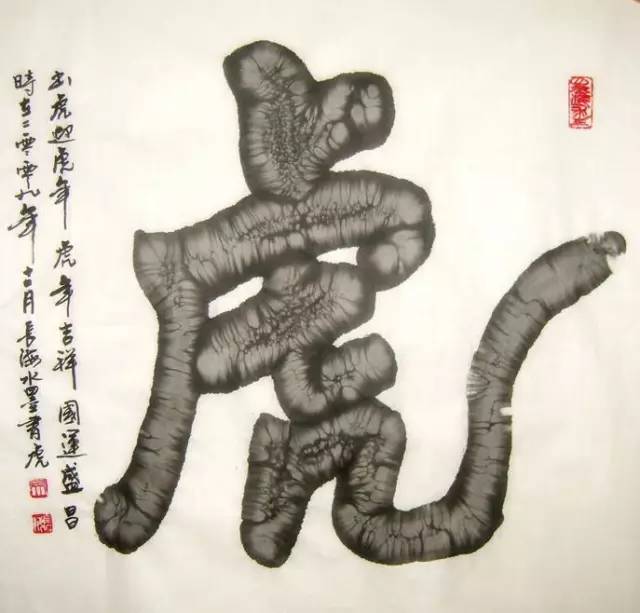 虎
虎迎虎年 虎年吉祥 國運盛昌
時在二零零九年 十二月 長海水墨書虎